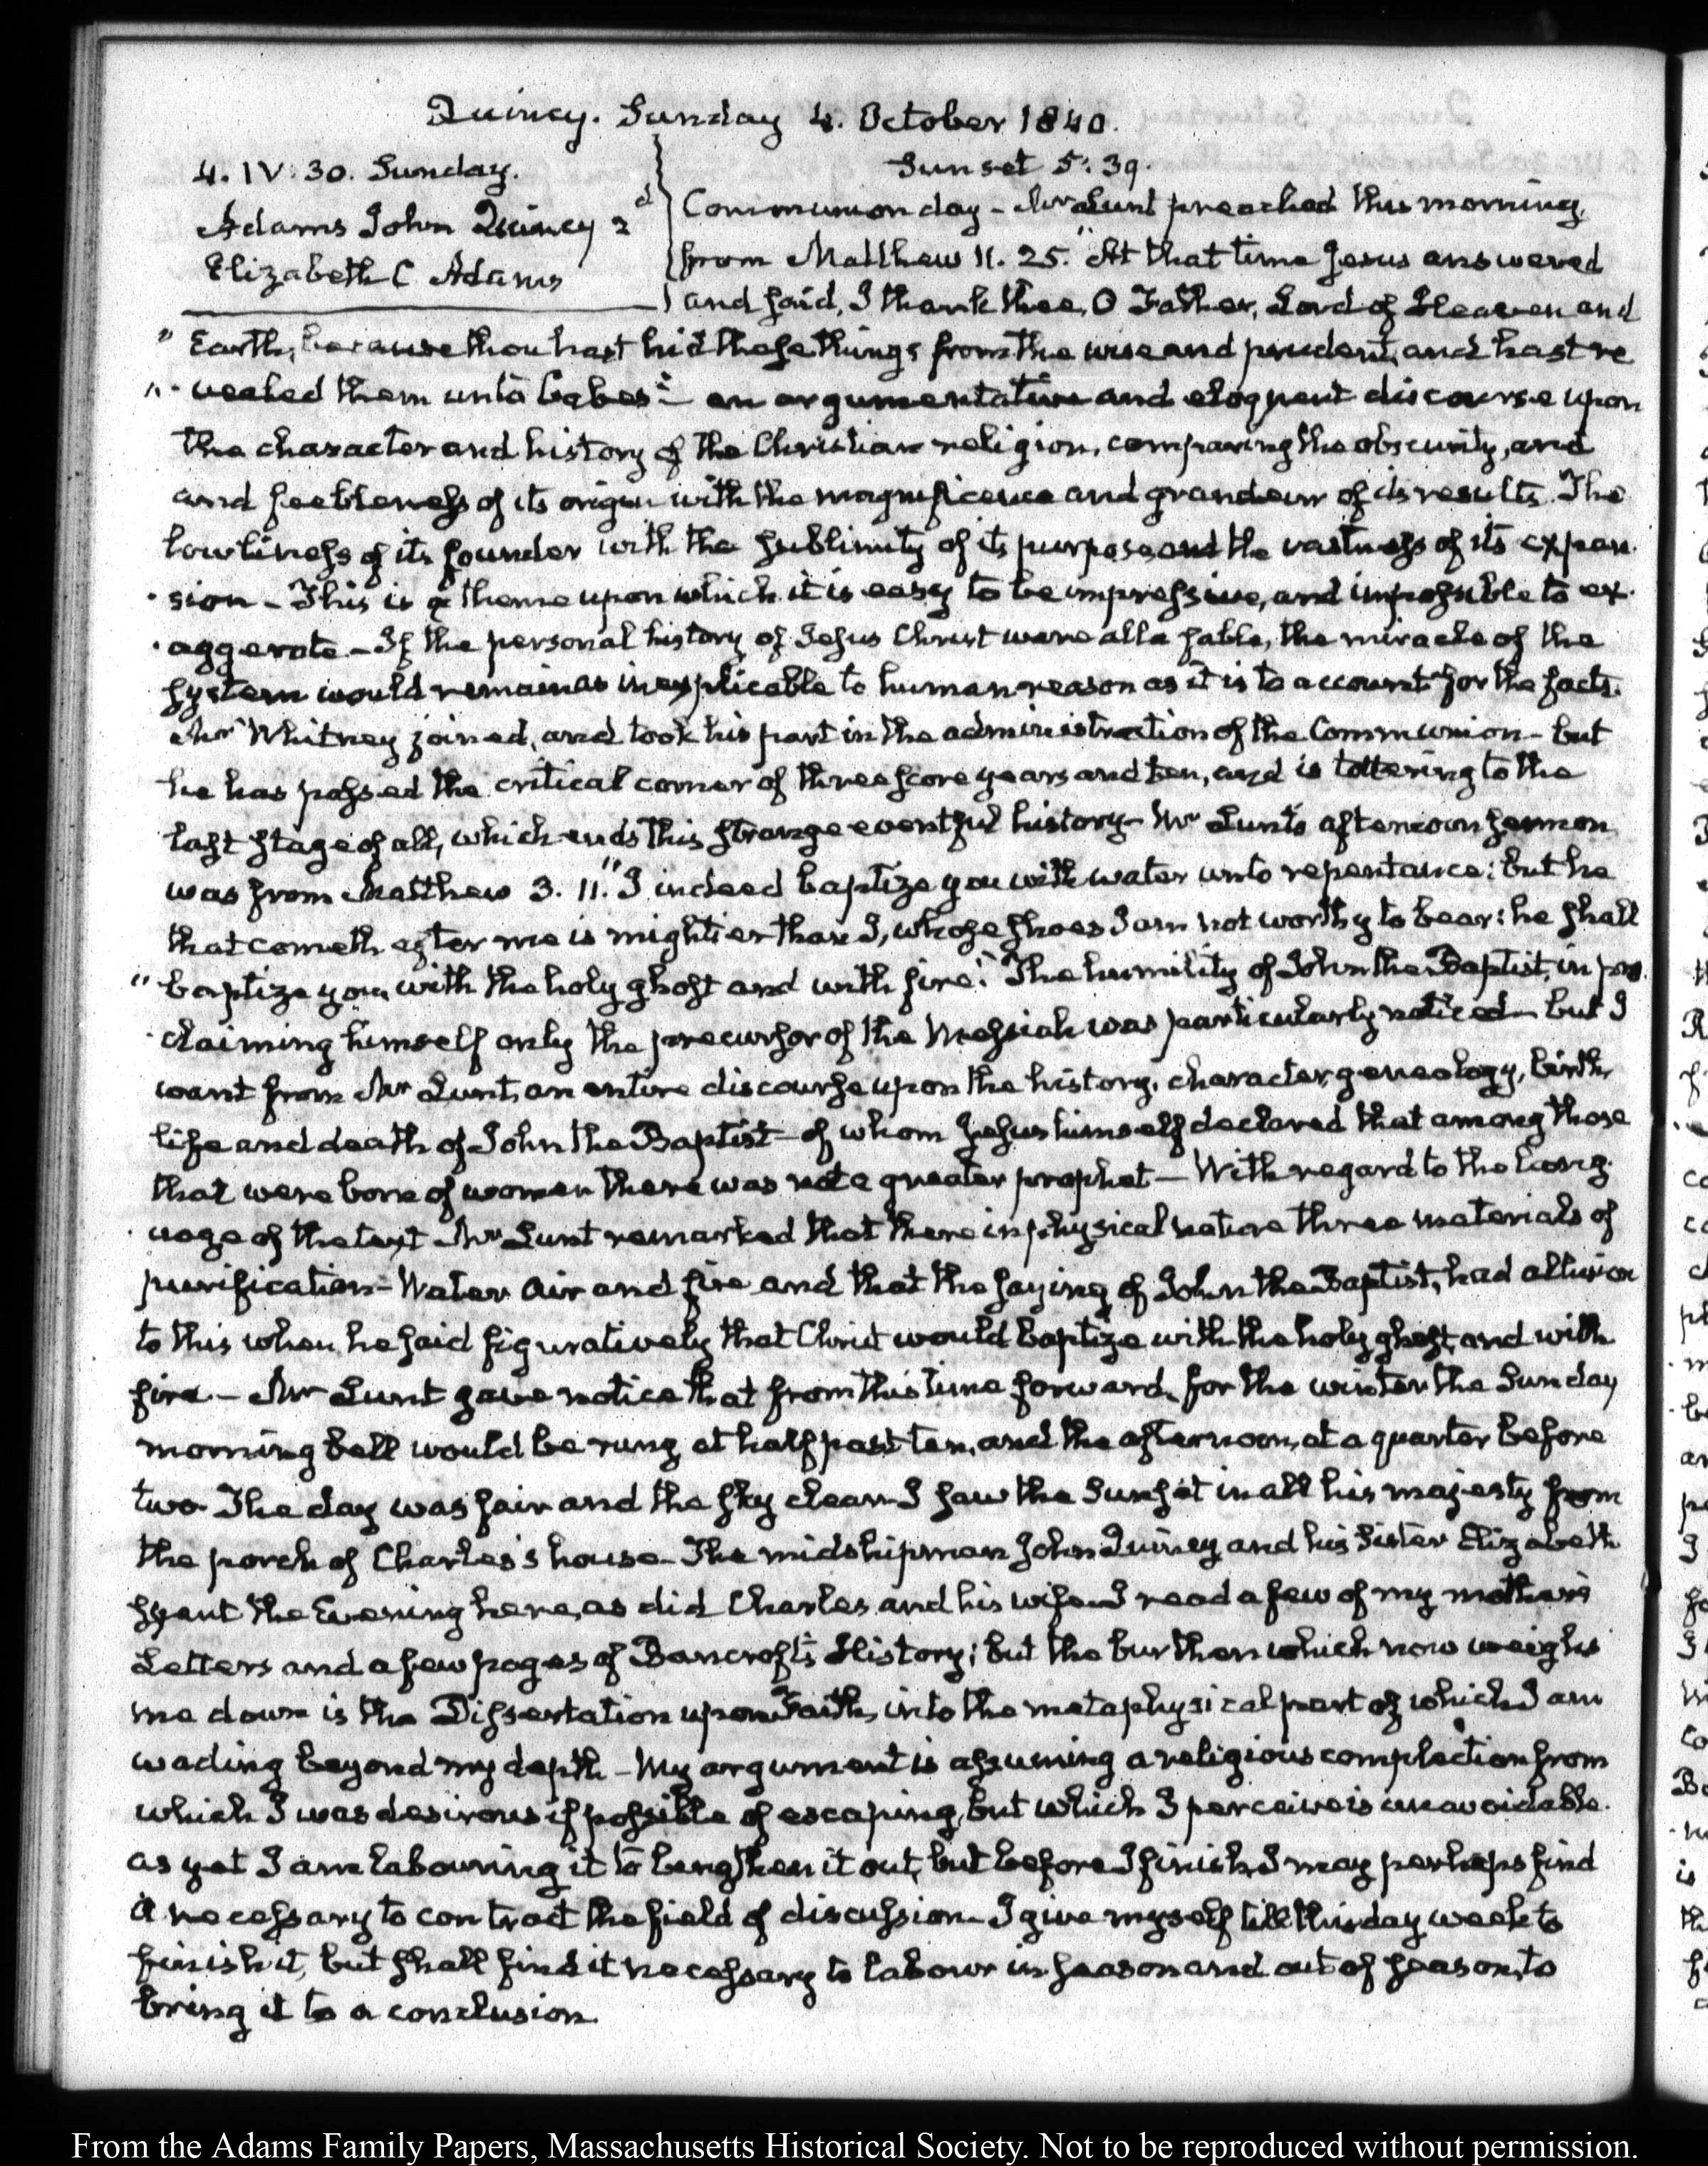 Quincy. Sunday 4. October 1840.
4. IV: 30. Sunday.
Adams John Quincy 2d
Elizabeth C Adams
Sunset 5: 39.
Communion day – Mr Lunt preached this morning,
from Matthew 11. 25. "At that time Jesus answered
and said, I thank thee, O Father, Lord of Heaven and
" Earth, because thou hast hid these things from the wise and prudent, and hast re
" - vealed them unto babes" – an argumentative and eloquent discourse upon
the character and history of the Christian religion, comparing the obscurity, and
and feebleness of its origin with the magnificence and grandeur of its results. The
lowliness of its founder with the sublimity of its purpose, and the vastness of its expan-
-sion – This is a theme upon which it is easy to be impressive, and impossible to ex-
-aggerate – If the personal history of Jesus Christ were all a fable, the miracle of the
system would remain as inexplicable to human reason as it is to account for the facts.
Mr Whitney joined, and took his part in the administration of the Communion – but
he has passed the critical corner of three score years and ten, and is tottering to the
last stage of all, which ends this strange eventful history – Mr Lunt's afternoon sermon
was from Matthew 3. 11. "I indeed baptize you with water unto repentance: but he
that cometh after me is mightier than I, whose shoes I am not worthy to bear: he shall
" baptize you with the holy ghost and with fire." The humility of John the Baptist, in pro
-claiming himself only the precursor of the Messiah was particularly noticed – but I
want from Mr Lunt, an entire discourse upon the history, character, genealogy, birth,
life and death of John the Baptist – of whom Jesus himself declared that among those
that were born of women there was not a greater prophet – With regard to the lang-
-uage of the text Mr Lunt remarked that there in physical nature three materials of
purification – Water Air and fire and that the saying of John the Baptist, had allusion
to this when he said figuratively that Christ would baptize with the holy ghost, and with
fire – Mr Lunt gave notice that from this time forward, for the winter the Sunday
morning bell would be rung at half past ten, and the afternoon, at a quarter before
two. The day was fair and the sky clear. I saw the Sun set in all his majesty from
the porch of Charles's house – The midshipman John Quincy and his Sister Elizabeth
spent the Evening here, as did Charles and his wife. I read a few of my mother's
Letters and a few pages of Bancroft's History; but the burthen which now weighs
me down is the Dissertation upon Faith, into the metaphysical part of which I am
wading beyond my depth – My argument is assuming a religious complection from
which I was desirous if possible of escaping, but which I perceive is unavoidable.
as yet I am labouring it to lengthen it out, but before I finish, I may perhaps find
it necessary to contract the field of discussion – I give myself till this day week to
finish it, but shall find it necessary to labour in season and out of season, to
bring it to a conclusion.
From the Adams Family Papers, Massachusetts Historical Society. Not to be reproduced without permission.